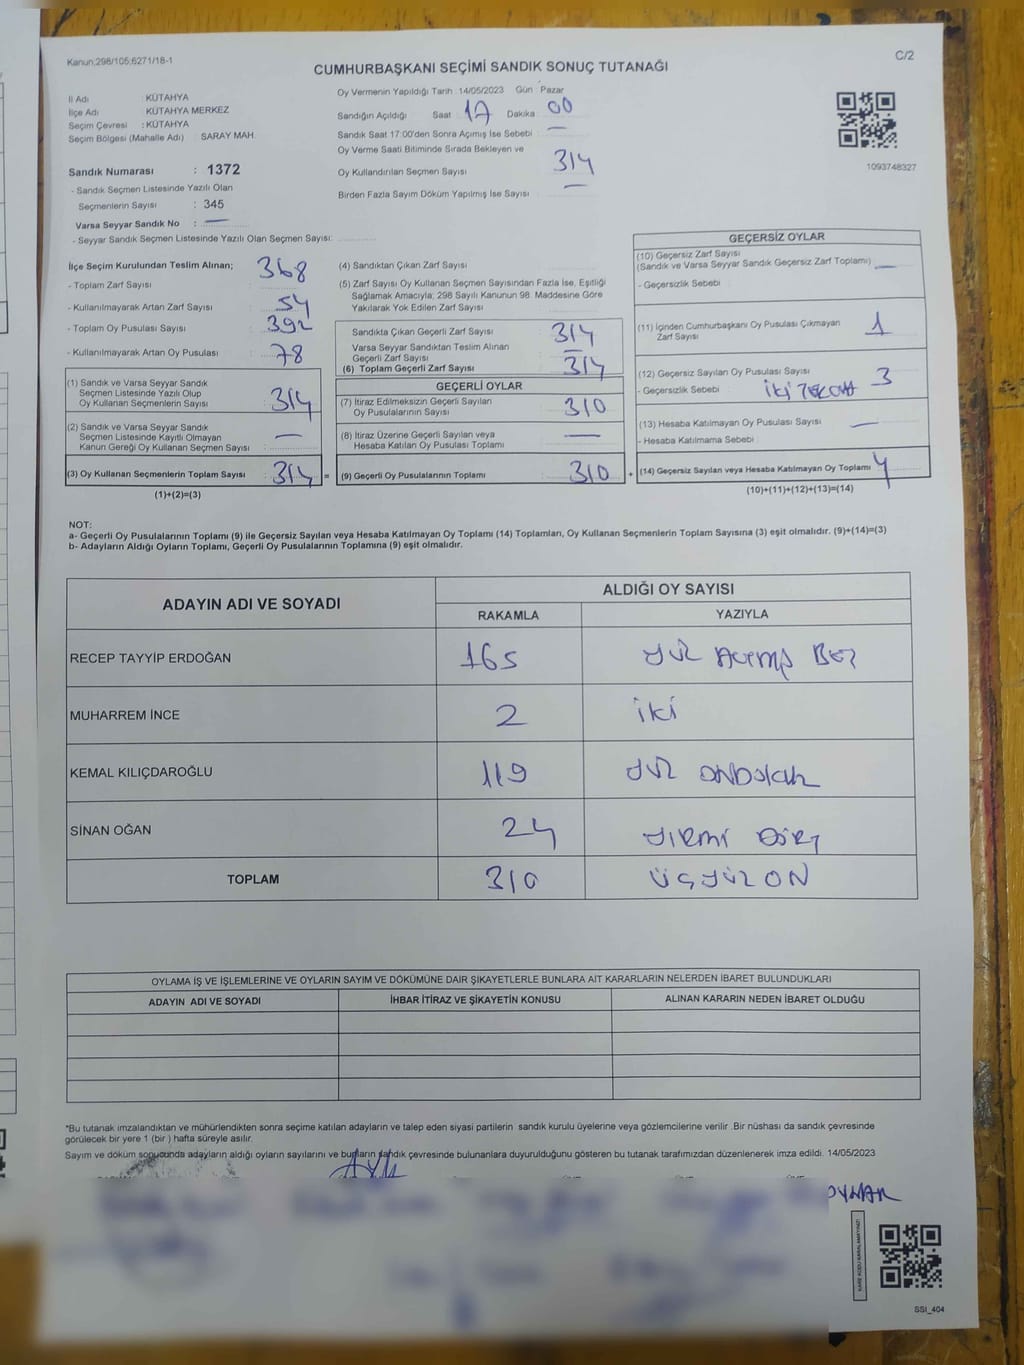 Kanun:298/105;6271/18-1
C/2
CUMHURBAŞKANI SEÇİMİ SANDIK SONUÇ TUTANAĞI
İl Adı : KÜTAHYA
İlçe Adı : KÜTAHYA MERKEZ
Seçim Çevresi : KÜTAHYA
Seçim Bölgesi (Mahalle Adı) : SARAY MAH.
Oy Vermenin Yapıldığı Tarih : 14/05/2023 Gün : Pazar
Sandığın Açıldığı Saat 17 Dakika 00
Sandık Saat 17:00'den Sonra Açımış İse Sebebi —
Oy Verme Saati Bitiminde Sırada Bekleyen ve
Oy Kullandırılan Seçmen Sayısı 314
Birden Fazla Sayım Döküm Yapılmış İse Sayısı —
1093748327
Sandık Numarası : 1372
- Sandık Seçmen Listesinde Yazılı Olan
Seçmenlerin Sayısı : 345
Varsa Seyyar Sandık No : —
- Seyyar Sandık Seçmen Listesinde Yazılı Olan Seçmen Sayısı:
İlçe Seçim Kurulundan Teslim Alınan;
- Toplam Zarf Sayısı 368
- Kullanılmayarak Artan Zarf Sayısı 54
- Toplam Oy Pusulası Sayısı 392
- Kullanılmayarak Artan Oy Pusulası 78
(1) Sandık ve Varsa Seyyar Sandık
Seçmen Listesinde Yazılı Olup
Oy Kullanan Seçmenlerin Sayısı 314
(2) Sandık ve Varsa Seyyar Sandık
Seçmen Listesinde Kayıtlı Olmayan
Kanun Gereği Oy Kullanan Seçmen Sayısı —
(3) Oy Kullanan Seçmenlerin Toplam Sayısı 314 =
(1)+(2)=(3)
(4) Sandıktan Çıkan Zarf Sayısı
(5) Zarf Sayısı Oy Kullanan Seçmen Sayısından Fazla İse, Eşitliği
Sağlamak Amacıyla; 298 Sayılı Kanunun 98. Maddesine Göre
Yakılarak Yok Edilen Zarf Sayısı
Sandıkta Çıkan Geçerli Zarf Sayısı 314
Varsa Seyyar Sandıktan Teslim Alınan
Geçerli Zarf Sayısı —
(6) Toplam Geçerli Zarf Sayısı 314
GEÇERLİ OYLAR
(7) İtiraz Edilmeksizin Geçerli Sayılan
Oy Pusulalarının Sayısı 310
(8) İtiraz Üzerine Geçerli Sayılan veya
Hesaba Katılan Oy Pusulası Toplamı —
(9) Geçerli Oy Pusulalarının Toplamı 310 +
GEÇERSİZ OYLAR
(10) Geçersiz Zarf Sayısı
(Sandık ve Varsa Seyyar Sandık Geçersiz Zarf Toplamı) —
- Geçersizlik Sebebi
(11) İçinden Cumhurbaşkanı Oy Pusulası Çıkmayan
Zarf Sayısı 1
(12) Geçersiz Sayılan Oy Pusulası Sayısı 3
- Geçersizlik Sebebi iki
(13) Hesaba Katılmayan Oy Pusulası Sayısı —
- Hesaba Katılmama Sebebi
(14) Geçersiz Sayılan veya Hesaba Katılmayan Oy Toplamı 4
(10)+(11)+(12)+(13)=(14)
NOT:
a- Geçerli Oy Pusulalarının Toplamı (9) ile Geçersiz Sayılan veya Hesaba Katılmayan Oy Toplamı (14) Toplamları, Oy Kullanan Seçmenlerin Toplam Sayısına (3) eşit olmalıdır. (9)+(14)=(3)
b- Adayların Aldığı Oyların Toplamı, Geçerli Oy Pusulalarının Toplamına (9) eşit olmalıdır.
ADAYIN ADI VE SOYADI
ALDIĞI OY SAYISI
RAKAMLA YAZIYLA
RECEP TAYYİP ERDOĞAN 165 YÜZ ALTMIŞ BEŞ
MUHARREM İNCE 2 İKİ
KEMAL KILIÇDAROĞLU 119 YÜZ ONDOKUZ
SİNAN OĞAN 24 YİRMİ DÖRT
TOPLAM 310 ÜÇYÜZ ON
OYLAMA İŞ VE İŞLEMLERİNE VE OYLARIN SAYIM VE DÖKÜMÜNE DAİR ŞİKAYETLERLE BUNLARA AİT KARARLARIN NELERDEN İBARET BULUNDUKLARI
ADAYIN ADI VE SOYADI İHBAR İTİRAZ VE ŞİKAYETİN KONUSU ALINAN KARARIN NEDEN İBARET OLDUĞU
*Bu tutanak imzalandıktan ve mühürlendikten sonra seçime katılan adayların ve talep eden siyasi partilerin sandık kurulu üyelerine veya gözlemcilerine verilir .Bir nüshası da sandık çevresinde
görülecek bir yere 1 (bir ) hafta süreyle asılır.
Sayım ve döküm sonucunda adayların aldığı oyların sayılarını ve bunların sandık çevresinde bulunanlara duyurulduğunu gösteren bu tutanak tarafımızdan düzenlenerek imza edildi. 14/05/2023
KARE KODU KARALAMAYINIZ!
SSI_404